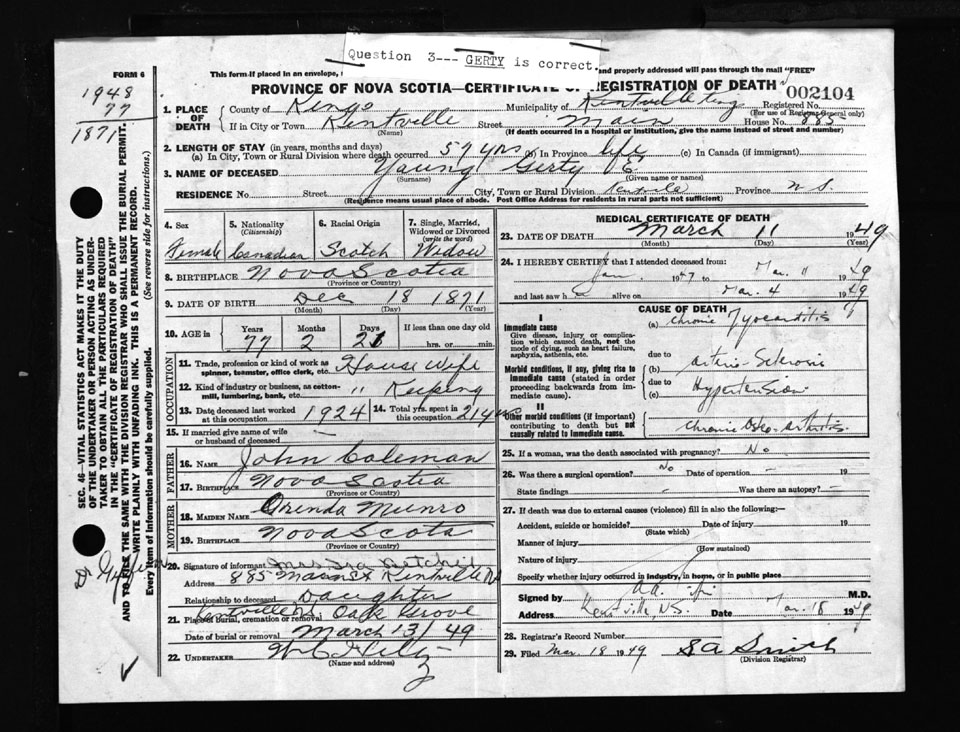 Question 3--- GERTY is correct.
FORM 6
This form if placed in an envelope, and properly addressed will pass through the mail "FREE"
PROVINCE OF NOVA SCOTIA—CERTIFICATE OF REGISTRATION OF DEATH
002104
1948
77
1871
1. PLACE OF DEATH
County of Kings
Municipality of Kentville
Registered No.
(For use of Registrar General only)
If in City or Town Kentville
(Name)
Street Main House No. 885
(If death occurred in a hospital or institution, give the name instead of street and number)
2. LENGTH OF STAY (in years, months and days)
(a) In City, Town or Rural Division where death occurred 57 yrs (b) In Province life (c) In Canada (if immigrant)
3. NAME OF DECEASED Young Gerty
(Surname) (Given name or names)
RESIDENCE No. Street City, Town or Rural Division Kentville Province N S.
(Residence means usual place of abode. Post Office Address for residents in rural parts not sufficient)
4. Sex Female
5. Nationality (Citizenship) Canadian
6. Racial Origin Scotch
7. Single, Married, Widowed or Divorced (write the word) Widow
8. BIRTHPLACE Nova Scotia
(Province or Country)
9. DATE OF BIRTH Dec 18 1871
(Month) (Day) (Year)
10. AGE in Years Months Days If less than one day old
77 2 21 hrs. or min.
OCCUPATION
11. Trade, profession or kind of work as spinner, teamster, office clerk, etc. House Wife
12. Kind of industry or business, as cotton-mill, lumbering, bank, etc. " Keeping
13. Date deceased last worked at this occupation 1924
14. Total yrs. spent in this occupation
15. If married give name of wife or husband of deceased —
FATHER
16. NAME John Coleman
17. BIRTHPLACE Nova Scotia
(Province or Country)
MOTHER
18. MAIDEN NAME Orenda Munro
19. BIRTHPLACE Nova Scotia
(Province or Country)
20. Signature of informant Mrs
Address 885 Main St Kentville NS
Relationship to deceased Daughter
21. Place of burial, cremation or removal Kentville NS. Oak Grove
Date of burial or removal March 13/49
22. UNDERTAKER
(Name and address)
MEDICAL CERTIFICATE OF DEATH
23. DATE OF DEATH March 11 1949
(Month) (Day) (Year)
24. I HEREBY CERTIFY that I attended deceased from
Jan 1947 to Mar 11 1949
and last saw h alive on Mar. 4 1949
CAUSE OF DEATH
I
Immediate cause
Give disease, injury or complication which caused death, not the mode of dying, such as heart failure, asphyxia, asthenia, etc.
(a) Chronic Myocarditis
due to
Morbid conditions, if any, giving rise to immediate cause (stated in order proceeding backwards from immediate cause).
(b) Arterio Sclerosis
due to
(c) Hypertension
II
Other morbid conditions (if important) contributing to death but not causally related to immediate cause.
Chronic Osteo-Arthritis.
25. If a woman, was the death associated with pregnancy? No
26. Was there a surgical operation? No Date of operation — 19
State findings - Was there an autopsy? -
27. If death was due to external causes (violence) fill in also the following:—
Accident, suicide or homicide? Date of injury 19
(State which)
Manner of injury
(How sustained)
Nature of injury
Specify whether injury occurred in industry, in home, or in public place
Signed by M.D.
Address Kentville, N.S. Date Mar. 18 1949
28. Registrar's Record Number
29. Filed Mar. 18 1949 S A Smith
(Division Registrar)
SEC. 46—VITAL STATISTICS ACT MAKES IT THE DUTY OF THE UNDERTAKER OR PERSON ACTING AS UNDERTAKER TO OBTAIN ALL THE PARTICULARS REQUIRED IN THE "CERTIFICATE OF REGISTRATION OF DEATH" AND TO FILE THE SAME WITH THE DIVISION REGISTRAR WHO SHALL ISSUE THE BURIAL PERMIT.
WRITE PLAINLY WITH UNFADING INK. THIS IS A PERMANENT RECORD.
Every Item of Information should be carefully supplied. (See reverse side for instructions.)